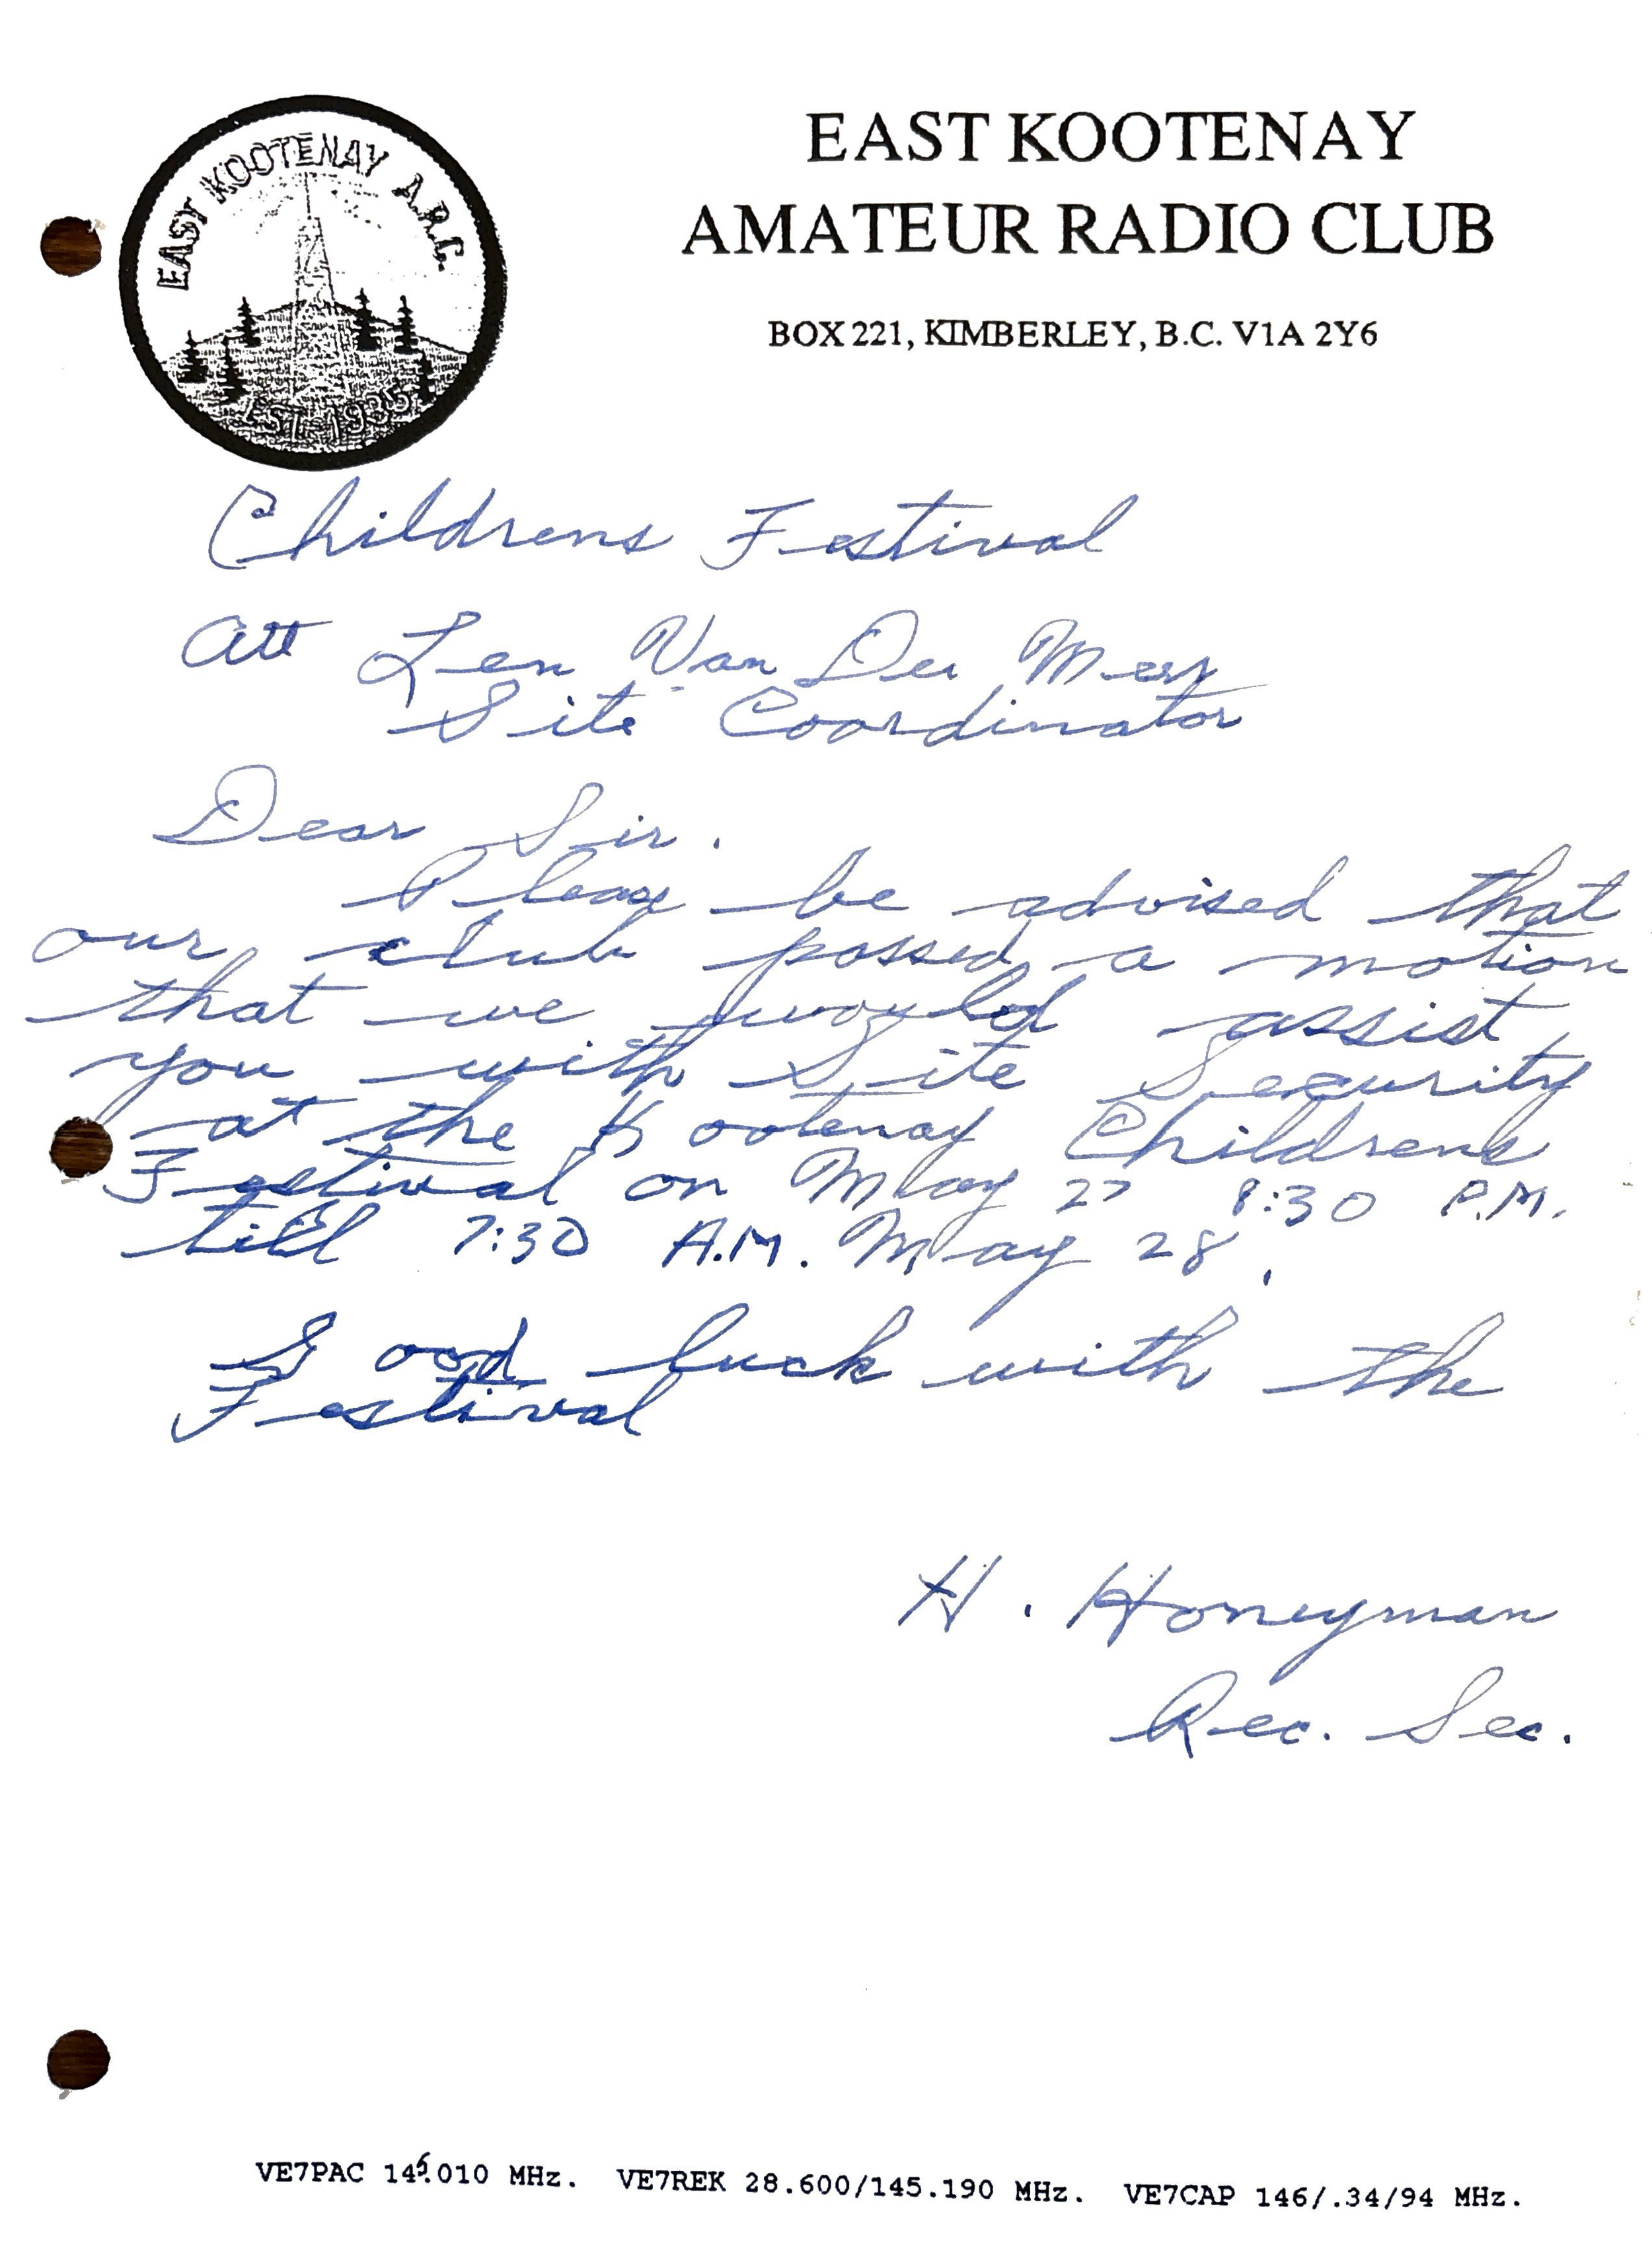 EAST KOOTENAY A.R.C.
EST. 1935
EAST KOOTENAY
AMATEUR RADIO CLUB
BOX 221, KIMBERLEY, B.C. V1A 2Y6
Childrens Festival
Att Len Van Der Meer
Site Coordinator
Dear Sir.
Please be advised that
our club passed a motion
that we would assist
you with Site Security
at the Kootenay Childrens
Festival on May 27 8:30 P.M.
till 7:30 A.M. May 28.
Good luck with the
Festival
H. Honeyman
Rec. Sec.
VE7PAC 145.010 MHz. VE7REK 28.600/145.190 MHz. VE7CAP 146/.34/94 MHz.